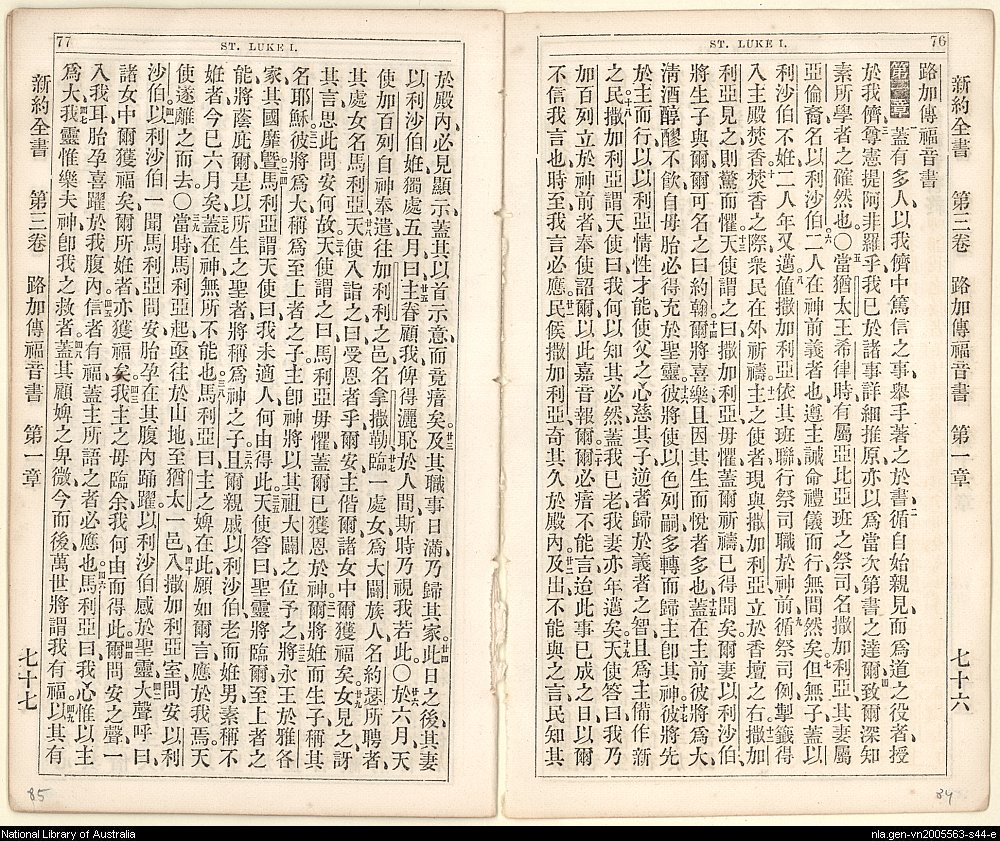 76
ST. LUKE I.
新約全書 第三卷 路加傳福音書 第一章 七十六
路加傳福音書
第一章 蓋有多人以我儕中篤信之事舉手著之於書二循自始親見而爲道之役者授
於我儕三尊憲提阿非羅乎我已於諸事詳細推原亦以爲當次第書之達爾四致爾深知
素所學者之確然也〇五當猶太王希律時有屬亞比亞班之祭司名撒加利亞其妻屬
亞倫裔名以利沙伯六二人在神前義者也遵主誡命禮儀而行無間然矣七但無子蓋以
利沙伯不姙二人年又邁八値撒加利亞依其班聯行祭司職於神前九循祭司例掣籤得
入主殿焚香十焚香之際衆民在外祈禱十一主之使者現與撒加利亞立於香壇之右十二撒加
利亞見之則驚而懼十三天使謂之曰撒加利亞毋懼蓋爾祈禱已得聞矣爾妻以利沙伯
將生子與爾爾可名之曰約翰十四爾將喜樂且因其生而悅者多也十五蓋在主前彼將爲大
淸酒醇醪不飮自母胎必得充於聖靈十六彼將使以色列嗣多轉而歸主卽其神十七彼將先
於主而行以以利亞情性才能使父之心慈其子逆者歸於義者之智且爲主備作新
之民十八撒加利亞謂天使曰我何以知其必然蓋我已老我妻亦年邁矣十九天使答曰我乃
加百列立於神前者奉使詔爾以此嘉音報爾二十爾必瘖不能言迨此事已成之日以爾
不信我言也時至我言必應廿一民候撒加利亞奇其久於殿內廿二及出不能與之言民知其
34
77
ST. LUKE I.
於殿內必見顯示蓋其以首示意而竟瘖矣廿三及其職事日滿乃歸其家廿四此日之後其妻
以利沙伯姙獨處五月曰廿五主眷顧我俾得灑恥於人間斯時乃視我若此〇廿六於六月天
使加百列自神奉遣往加利利之邑名拿撒勒廿七臨一處女爲大闢族人名約瑟所聘者
其處女名馬利亞廿八天使入詣之曰受恩者乎爾安主偕爾諸女中爾獲福矣廿九女見之訝
其言思此問安何故三十天使謂之曰馬利亞毋懼蓋爾已獲恩於神三一爾將姙而生子稱其
名耶穌三二彼將爲大稱爲至上者之子主卽神將以其祖大闢之位予之三三將永王於雅各
家其國靡曁三四馬利亞謂天使曰我未適人何由得此三五天使答曰聖靈將臨爾至上者之
能將蔭庇爾是以所生之聖者將稱爲神之子三六且爾親戚以利沙伯老而姙男素稱不
姙者今已六月矣三七蓋在神無所不能也三八馬利亞曰主之婢在此願如爾言應於我焉天
使遂離之而去〇三九當時馬利亞起亟往於山地至猶太一邑四十入撒加利亞室問安以利
沙伯四一以利沙伯一聞馬利亞問安胎孕在其腹內踊躍四二以利沙伯感於聖靈大聲呼曰
諸女中爾獲福矣爾所姙者亦獲福矣四三我主之母臨余我何由而得此四四爾問安之聲一
入我耳胎孕喜躍於我腹內四五信者有福蓋主所語之者必應也四六馬利亞曰我心惟以主
爲大四七我靈惟樂夫神卽我之救者四八蓋其顧婢之卑微今而後萬世將謂我有福四九以其有
新約全書 第三卷 路加傳福音書 第一章 七十七
85
National Library of Australia
nla.gen-vn2005563-s44-e